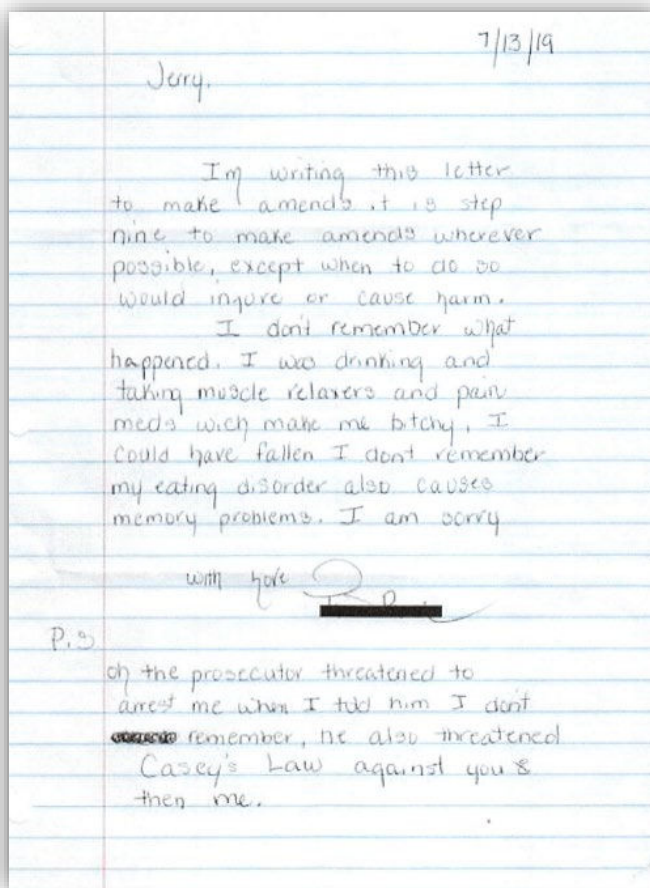 7/13/19
Jerry,
Im writing this letter
to make amends. it is step
nine to make amends wherever
possible, except when to do so
would injure or cause harm.
I don't remember what
happened. I was drinking and
taking muscle relaxers and pain
meds wich make me bitchy, I
could have fallen I dont remember
my eating disorder also causes
memory problems. I am sorry
with love
P.S
oh the prosecutor threatened to
arrest me when I told him I don't
remember, he also threatened
Casey's Law against you &
then me.